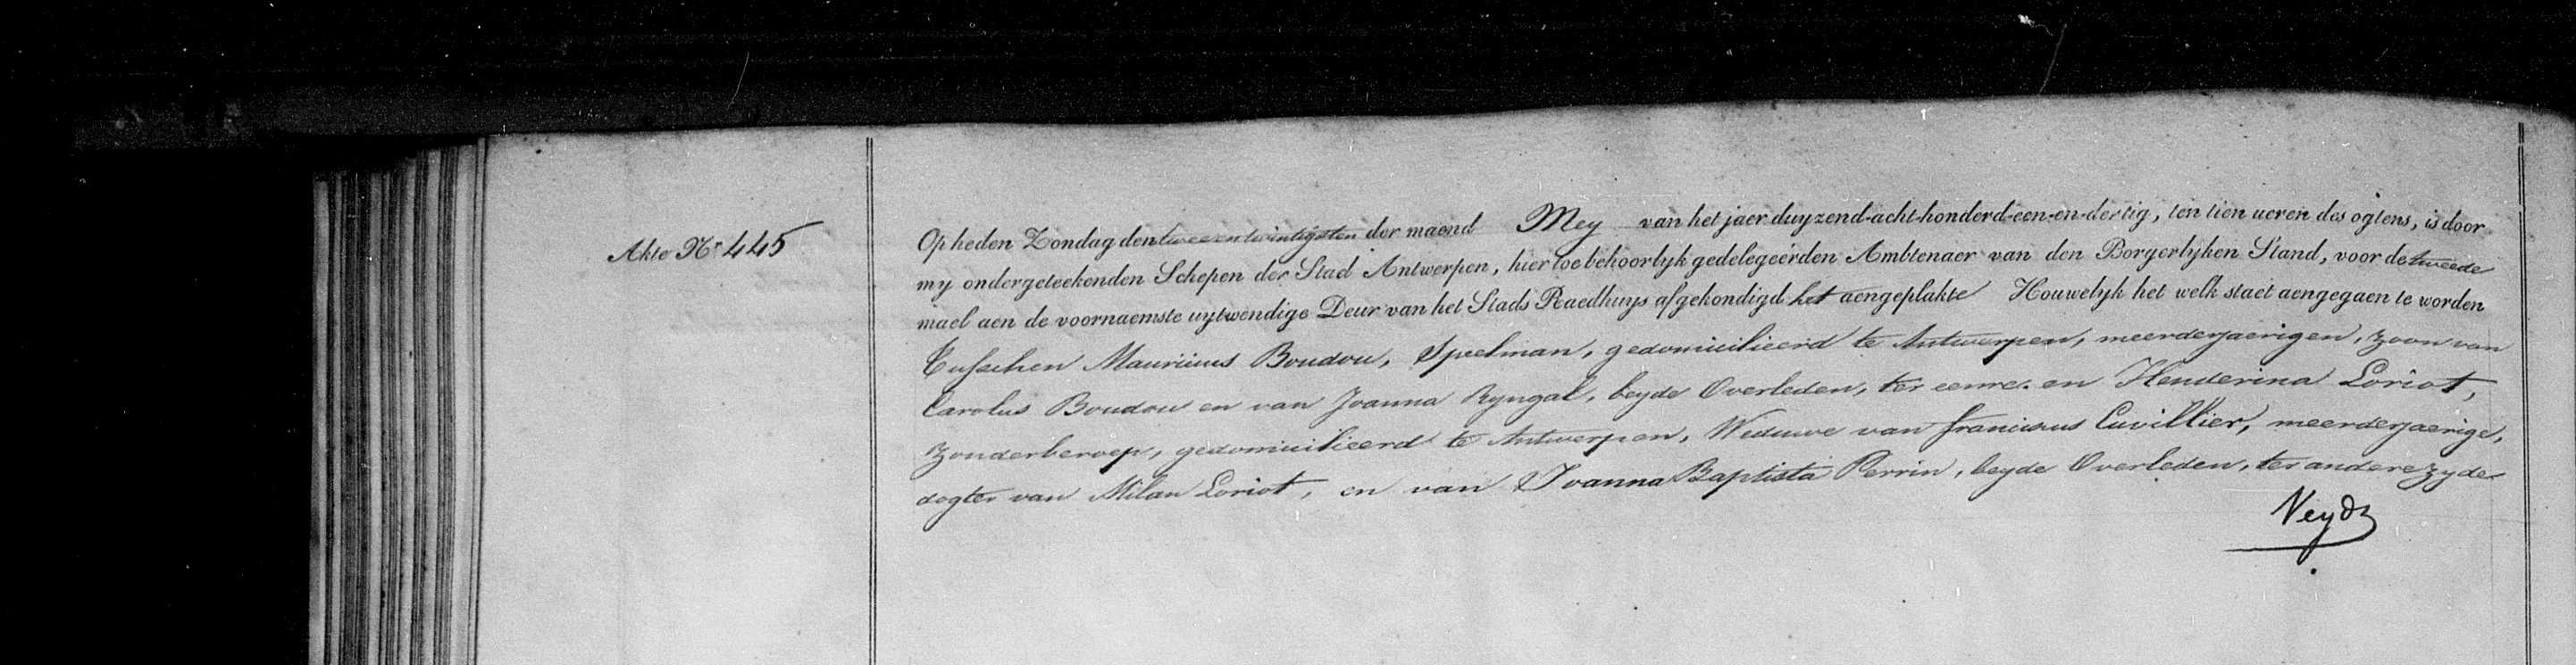 Akte Nr 445
Op heden Zondag den tweeentwintigsten der maend Mey van het jaer duyzend-acht-honderd-een-en-dertig, ten tien ueren des ogtens, is door
my ondergeteekenden Schepen der Stad Antwerpen, hiertoe behoorlyk gedelegeérden Ambtenaer van den Borgerlyken Stand, voor de tweede
mael aen de voornaemste uytwendige Deur van het Stads Raedhuys afgekondigd het aengeplakte Houwelyk het welk staet aengegaen te worden
Tusschen Mauritius Boudou, Speelman, gedomicilieerd te Antwerpen, meerderjaerigen, zoon van
Carolus Boudou en van Joanna Ryngal, beyde Overleden, ter eenre. en Henderina Loriot,
zonder beroep, gedomicilieerd te Antwerpen, Weduwe van franciscus Cuvillier, meerderjaerige,
dogter van Milan Loriot, en van Joanna Baptista Perrin, beyde Overleden, ter andere zyde
Veydt